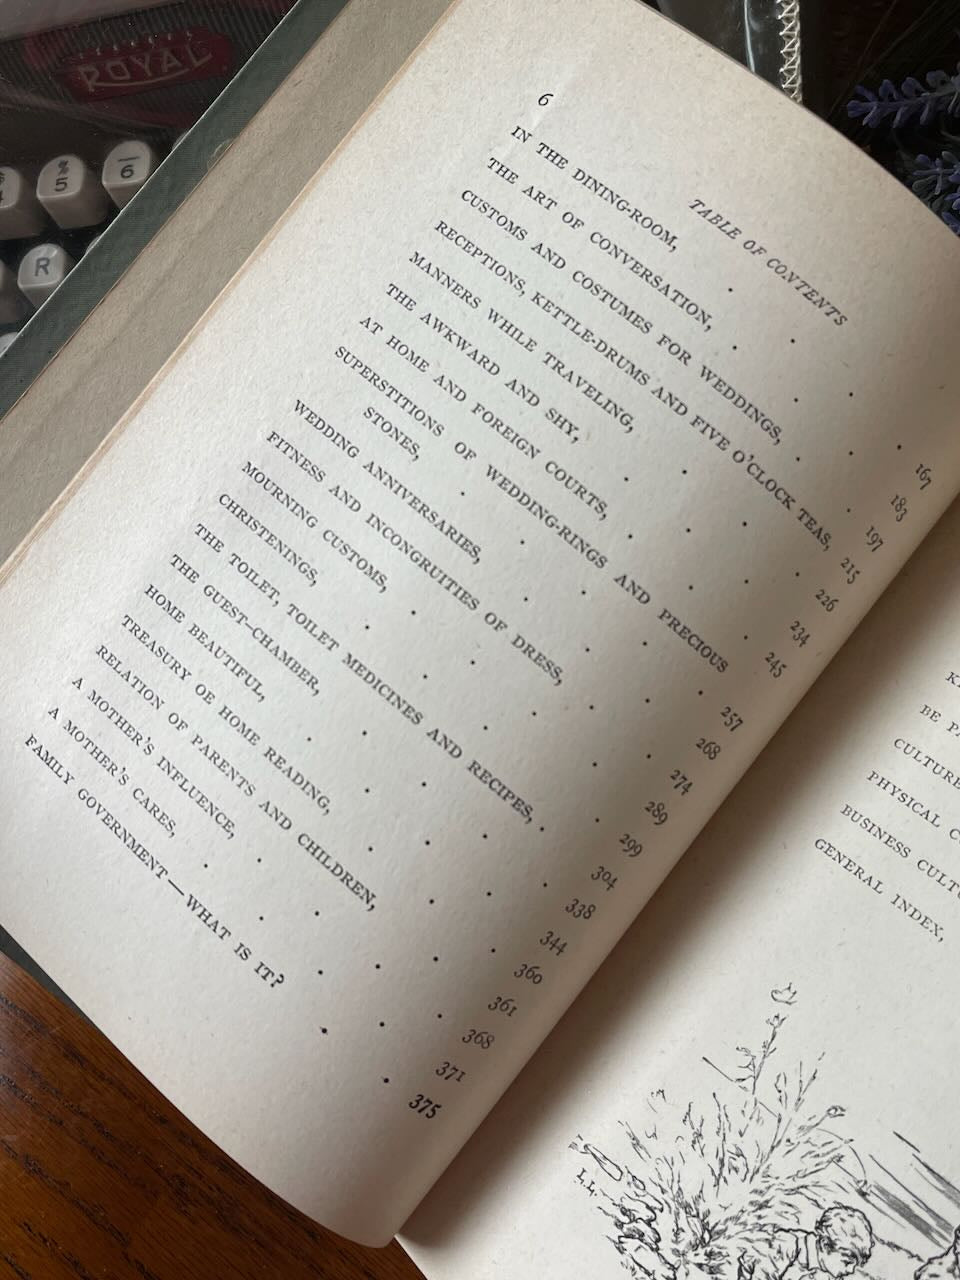 ROYAL
5
6
R
6
TABLE OF CONTENTS
IN THE DINING-ROOM, . . . . 167
THE ART OF CONVERSATION, . . . . 183
CUSTOMS AND COSTUMES FOR WEDDINGS, . . . 197
RECEPTIONS, KETTLE-DRUMS AND FIVE O'CLOCK TEAS, 215
MANNERS WHILE TRAVELING, . . . . 226
THE AWKWARD AND SHY, . . . . 234
AT HOME AND FOREIGN COURTS, . . . . 245
SUPERSTITIONS OF WEDDING-RINGS AND PRECIOUS
STONES, . . . . . 257
WEDDING ANNIVERSARIES, . . . . 268
FITNESS AND INCONGRUITIES OF DRESS, . . . 274
MOURNING CUSTOMS, . . . . 289
CHRISTENINGS, . . . . . 299
THE TOILET, TOILET MEDICINES AND RECIPES, . . 304
THE GUEST-CHAMBER, . . . . 338
HOME BEAUTIFUL, . . . . . 344
TREASURY OE HOME READING, . . . . 360
RELATION OF PARENTS AND CHILDREN, . . . 361
A MOTHER'S INFLUENCE, . . . . 368
A MOTHER'S CARES, . . . . 371
FAMILY GOVERNMENT—WHAT IS IT? . . 375
BE
CULTURE
PHYSICAL
BUSINESS
GENERAL INDEX,
I.L.